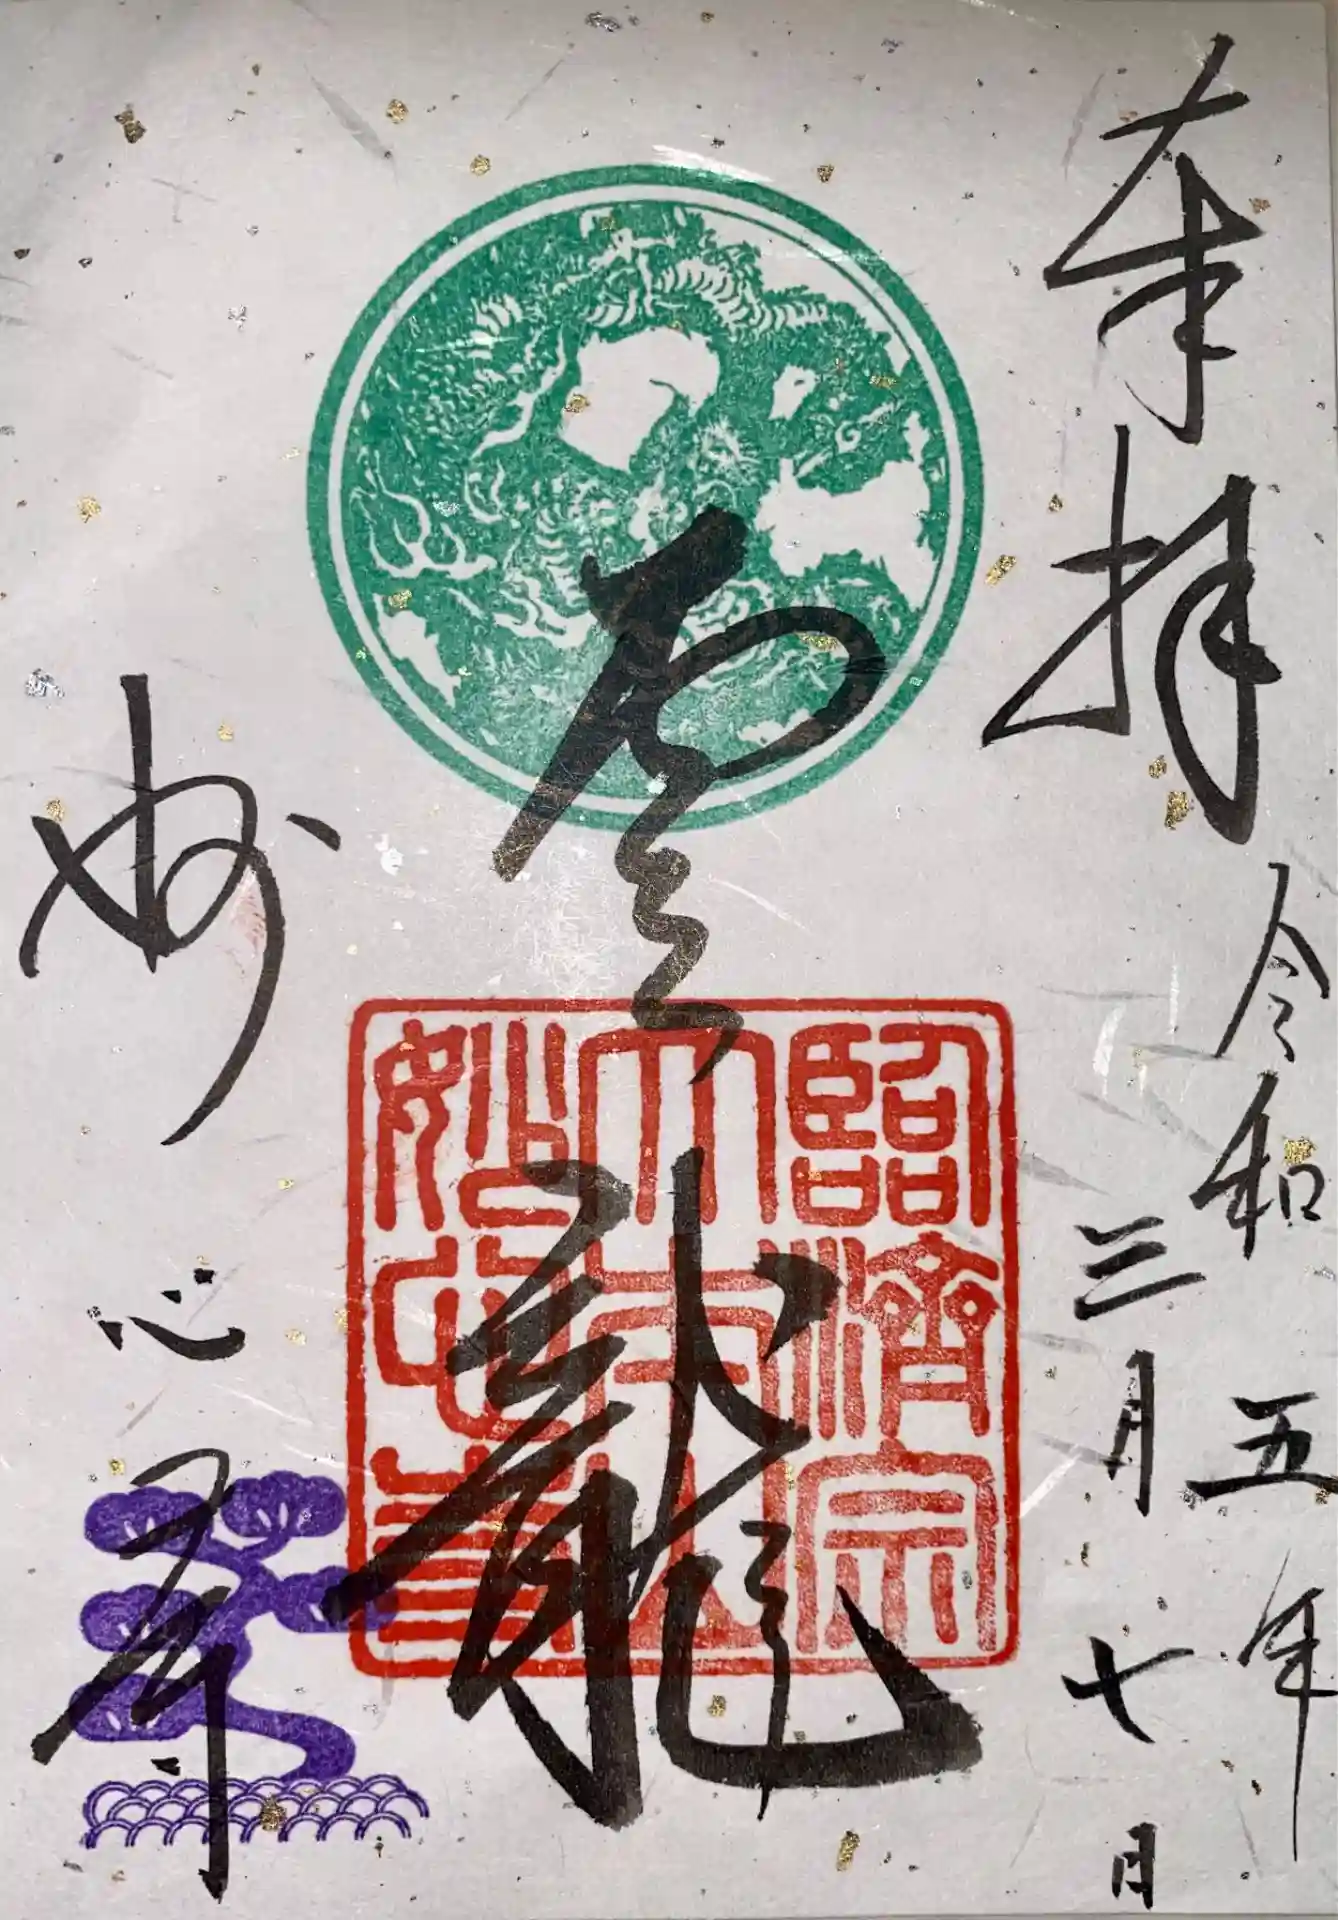 奉拝
令和五年
三月七日
雲龍
臨濟宗
大本山
妙心寺
妙心寺